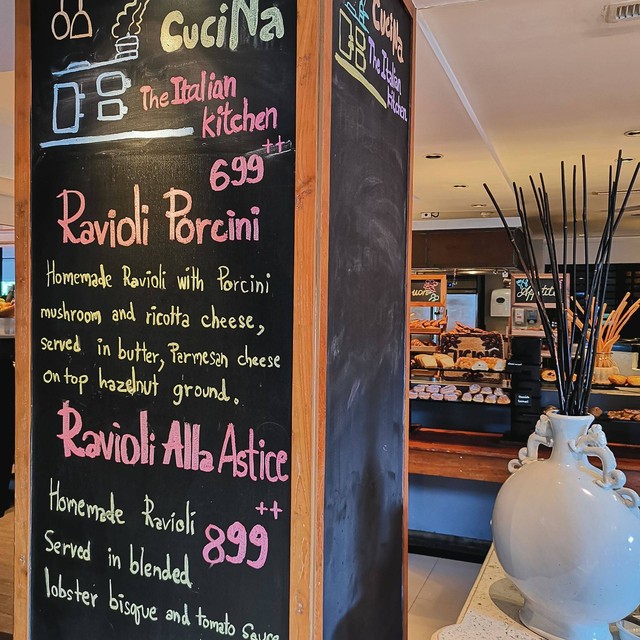 CuciNa
The Italian
kitchen
699++
Ravioli Porcini
Homemade Ravioli with Porcini
mushroom and ricotta cheese,
served in butter, Parmesan cheese
on top hazelnut ground.
Ravioli Alla Astice
899++
Homemade Ravioli
Served in blended
lobster bisque and tomato sauce
CuciNa
The Italian
kitchen